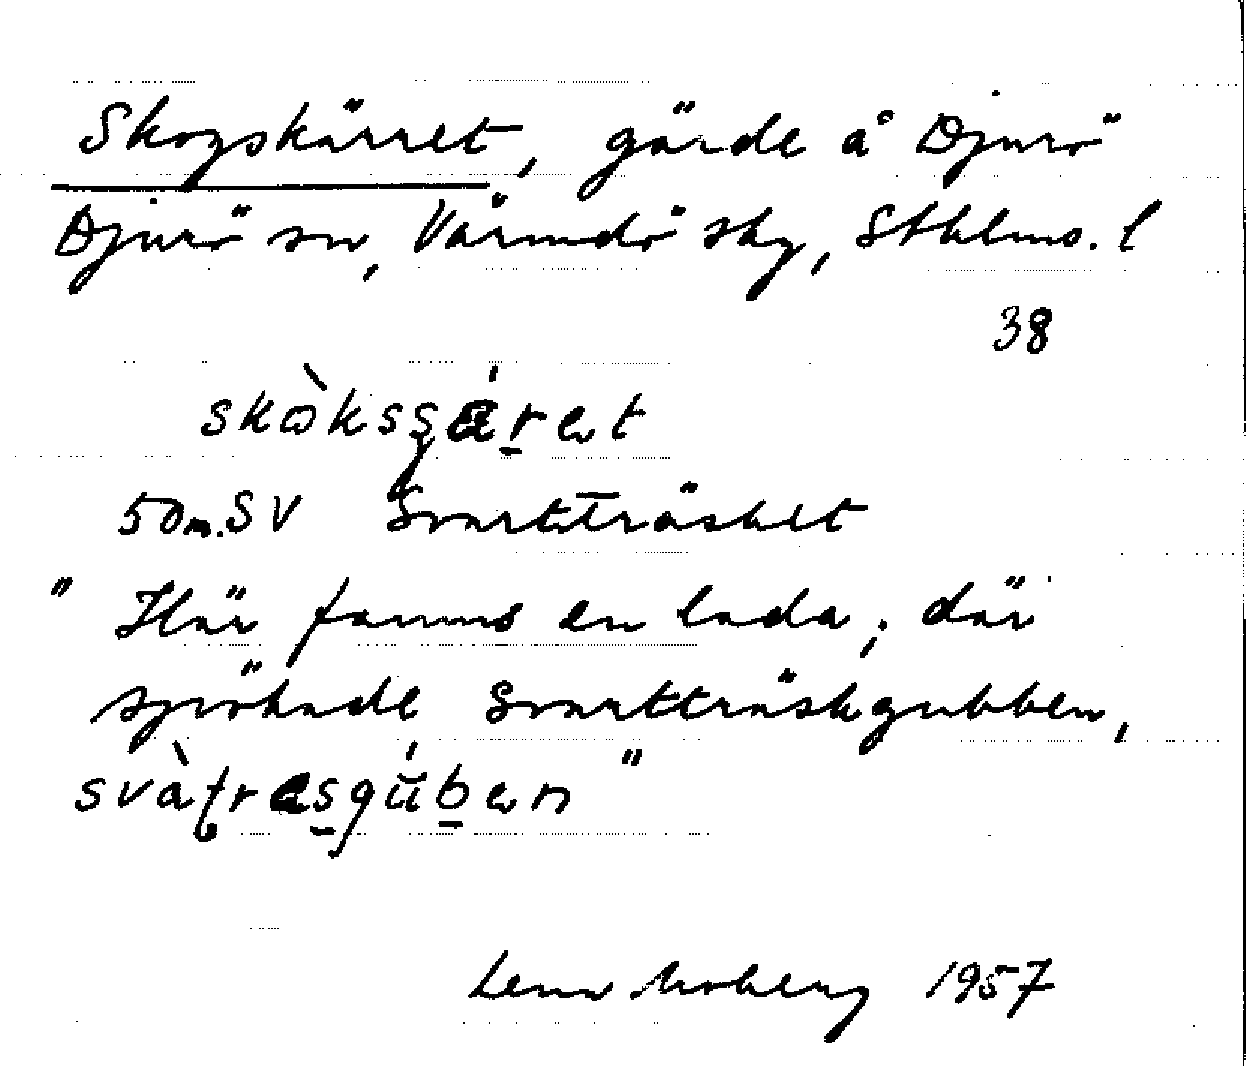 Skogskärret, gärde å Djurö
Djurö sn, Värmdö skg, Sthlms. l
38
skòksşä́ret
50m. SV Svartträsket
" Här fanns en lada, där
spökade Svartträskgubben,
"
Lena Moberg 1957